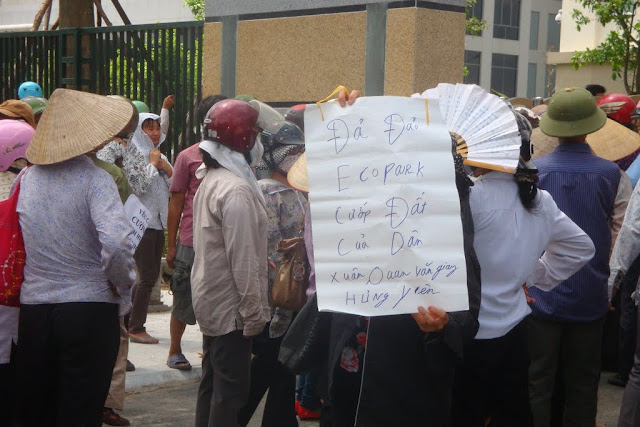 Đả Đảo
Ecopark
Cướp Đất
Của Dân
Xuân Quan văn giang
Hưng Yên